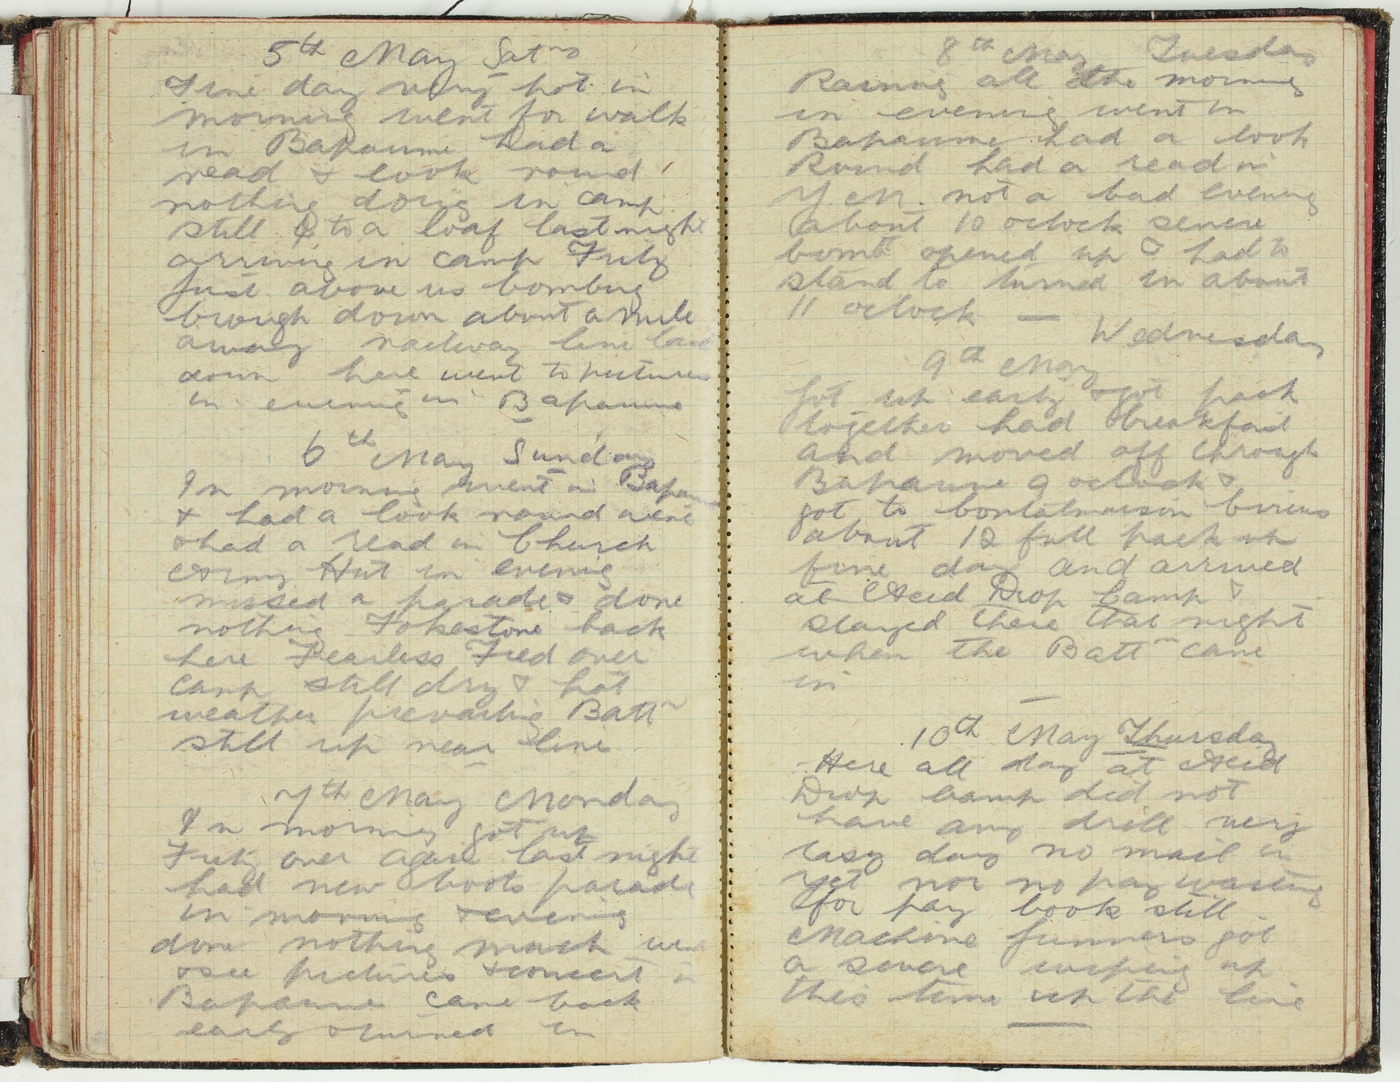 5th May Sat
Fine day very hot in
morning went for walk
in Bapaume had a
read & look round
nothing doing in camp
still 6 to a loaf last night
arriving in camp Fritz
just above us bombing
brough down about a mile
away railway line
down here went to pictures
in evening in Bapaume
6th May Sunday
In morning went in Bapaume
& had a look round
& had a read in Church
Army Hut in evening
missed a parade & done
nothing Fokestone back
here Fearless Fred over
camp still dry & hot
weather prevailing Battn
still up near line
7th May Monday
In morning got up
Fritz over again last night
had new boots parade
in morning & evening
done nothing much went
& see pictures & concert in
Bapaume came back
early & turned in
8th May Tuesday
Raining all the morning
in evening went in
Bapaume had a look
Round had a read in
Y.M. not a bad evening
about 10 oclock severe
bomb opened up & had to
stand to turned in about
11 oclock —
Wednesday
9th May
Got up early & got pack
together had breakfast
and moved off through
Bapaume 9 oclock &
got to
about 12 full pack up
fine day and arrived
at Acid Drop Camp &
stayed there that night
when the Battn came
in
10th May Thursday
Here all day at Acid
Drop Camp did not
have any drill very
easy day no mail in
yet nor no pay waiting
for pay book still
Machine gunners got
a severe wiping up
this time up the line